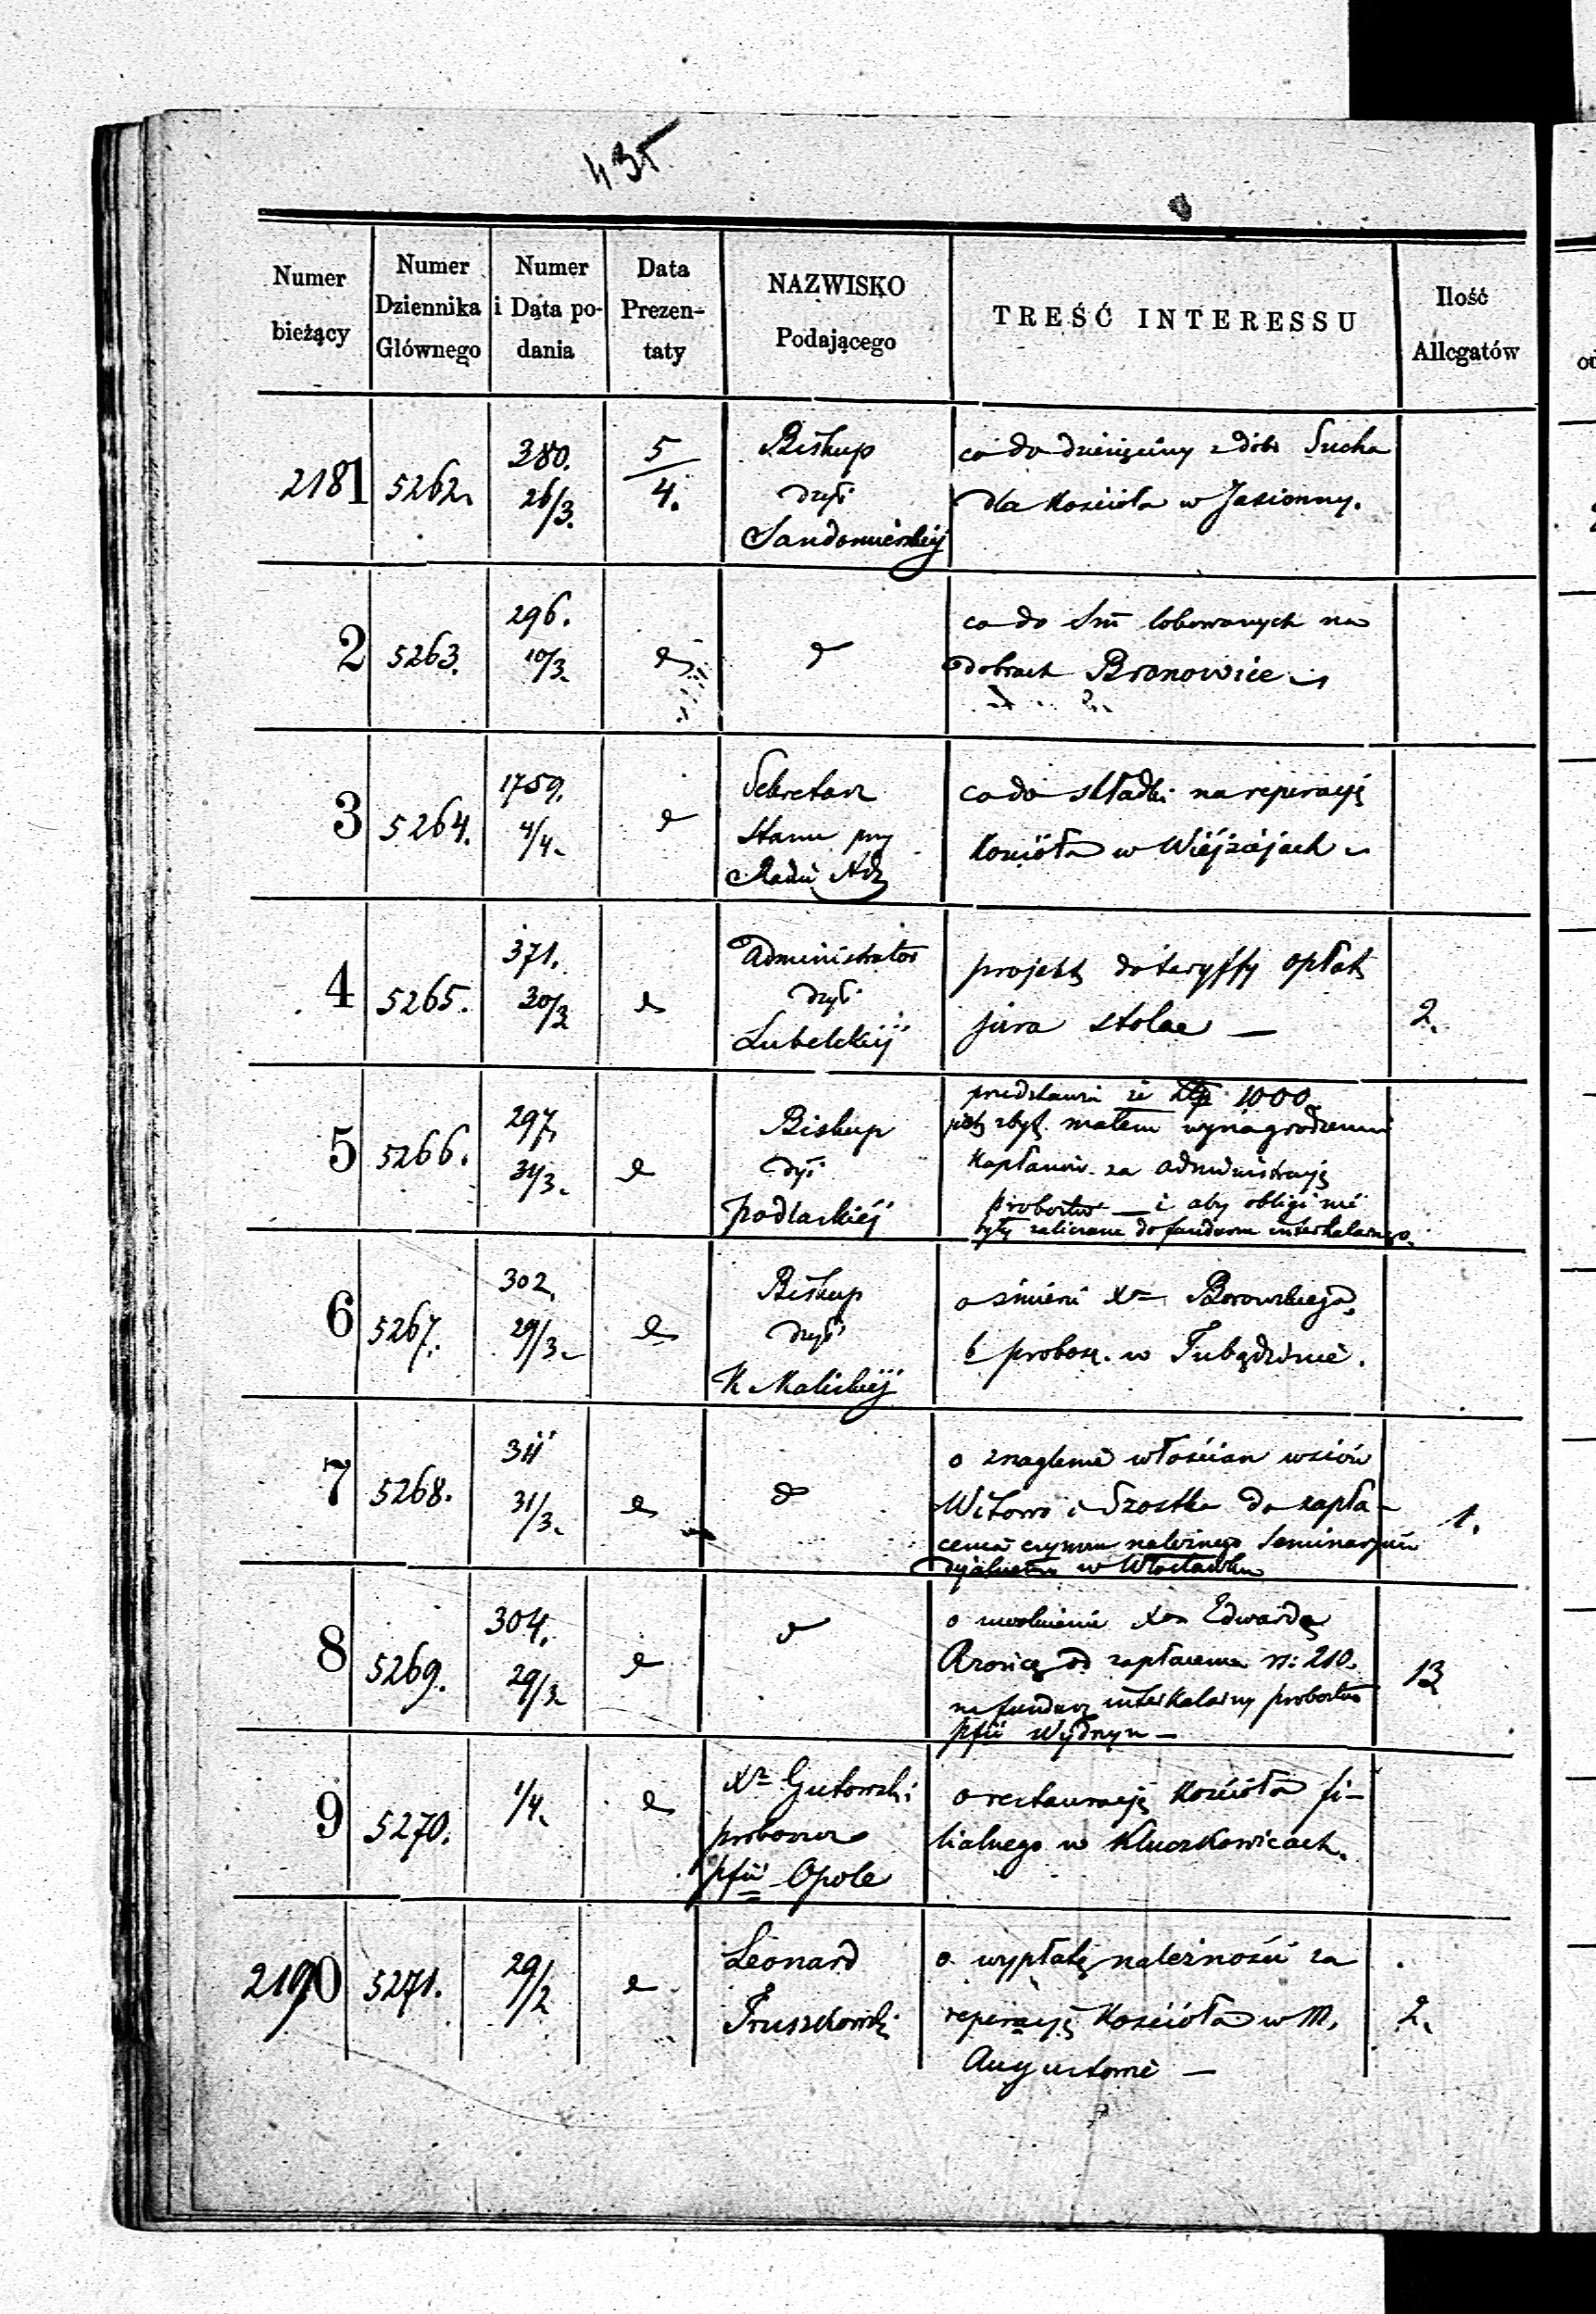 435
Numer bieżący
Numer Dziennika Głównego
Numer i Data podania
Data Prezentaty
NAZWISKO Podającego
TREŚĆ INTERESSU
Ilość Allegatów
2181 5262. 380. 26/3. 5/4.
Biskup
dyec
Sandomierskiej
co do dziesięciny z dóbr Sucha
dla Kościoła w Jasionny.
2 5263. 296. 10/3. d d
co do Sm̃ lokowanych na
dobrach Bronowice
3 5264. 1759. 4/4. d
Sekretarz
Stanu przy
Radzie Adm
co do składki na reperacyę
Kościoła w Wiejsiejach
4 5265. 371. 30/3 d
Administrator
dyec
Lubelskiej
projekt do taryffy opłat
jura stolae —
2.
5 5266. 297. 31/3. d
Biskup
dyec
podlaskiej
przedstawia że Złp 1000
jest zbyt małem wynagrodzeniem
Kapłanów za administracyę
probostw — i aby obligi nie
były zaliczane do funduszu interkalarnego.
6 5267. 302. 29/3. d
Biskup
dyec
K. Kaliskiej
o śmierci Xa Borowskiego,
b probosz. w Tubądzinie.
7 5268. 311 31/3. d d
o znaglenie włościan wsiów
Witowo i Szostka do zapła-
cenia czynszu należnego Seminaryum
dyecalnemu w Włocławku
1.
8 5269. 304. 29/3 d d
o uwolnienie Xa Edwarda
od zapłacenia rs: 210.
na fundusz interkalarny probostwa
pfii
13
9 5270. 1/4. d
Xa Gutowski
proboszcz
pfii Opole
o restauracyę Kościoła fi-
lialnego w Kluczkowicach.
2190 5271. 29/2 d
Leonard
Truszkowski
o wypłatę należności za
reperacyę Kościoła w M.
Augustowie —
2.